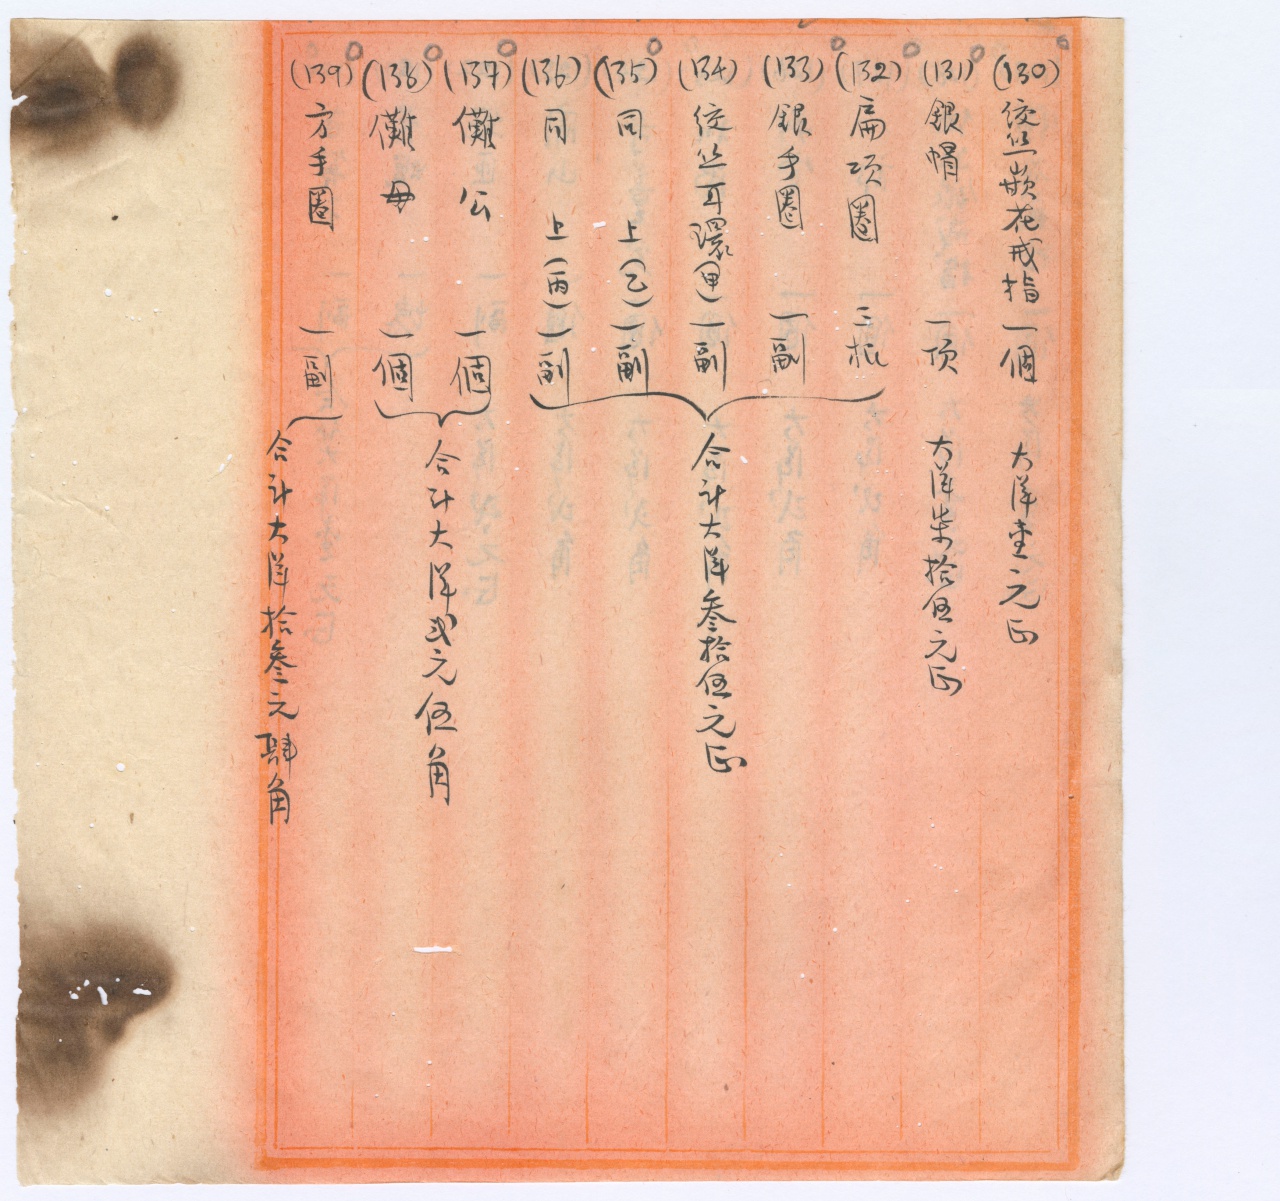 (130) 绞丝嵌花戒指 一個 大洋壹元正
(131) 銀帽 一项 大洋柒拾伍元正
(132) 扁项圈 三根
(133) 銀手圈 一副
(134) 绞丝耳環(甲) 一副
(135) 同上(乙) 一副
(136) 同上(丙) 一副
合计大洋叁拾伍元正
(137) 儺公 一個
(138) 儺母 一個
合计大洋弍元伍角
(139) 方手圈 一副
合计大洋拾叁元肆角